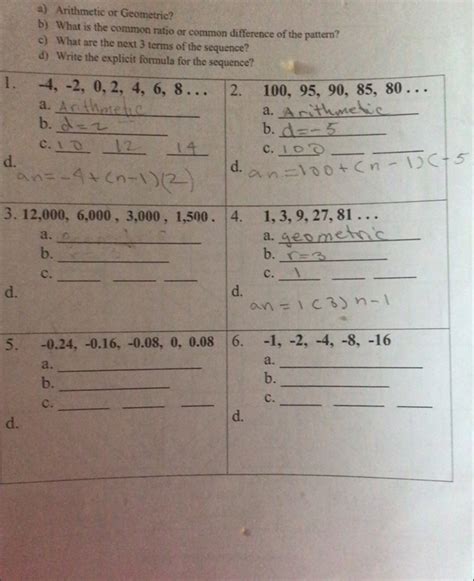 a) Arithmetic or Geometric?
b) What is the common ratio or common difference of the pattern?
c) What are the next 3 terms of the sequence?
d) Write the explicit formula for the sequence?
1. -4, -2, 0, 2, 4, 6, 8 . . .
a. Arithmetic
b. d=2
c. 10 12 14
d.
an=-4+(n-1)(2)
2. 100, 95, 90, 85, 80 . . .
a. Arithmetic
b. d=-5
c. 100
d. an=100+(n-1)(-5
3. 12,000, 6,000 , 3,000 , 1,500 .
a.
b.
c.
d.
4. 1, 3, 9, 27, 81 . . .
a. geometric
b. r=3
c. 1
d.
an=1(3)n-1
5. -0.24, -0.16, -0.08, 0, 0.08
a.
b.
c.
d.
6. -1, -2, -4, -8, -16
a.
b.
c.
d.